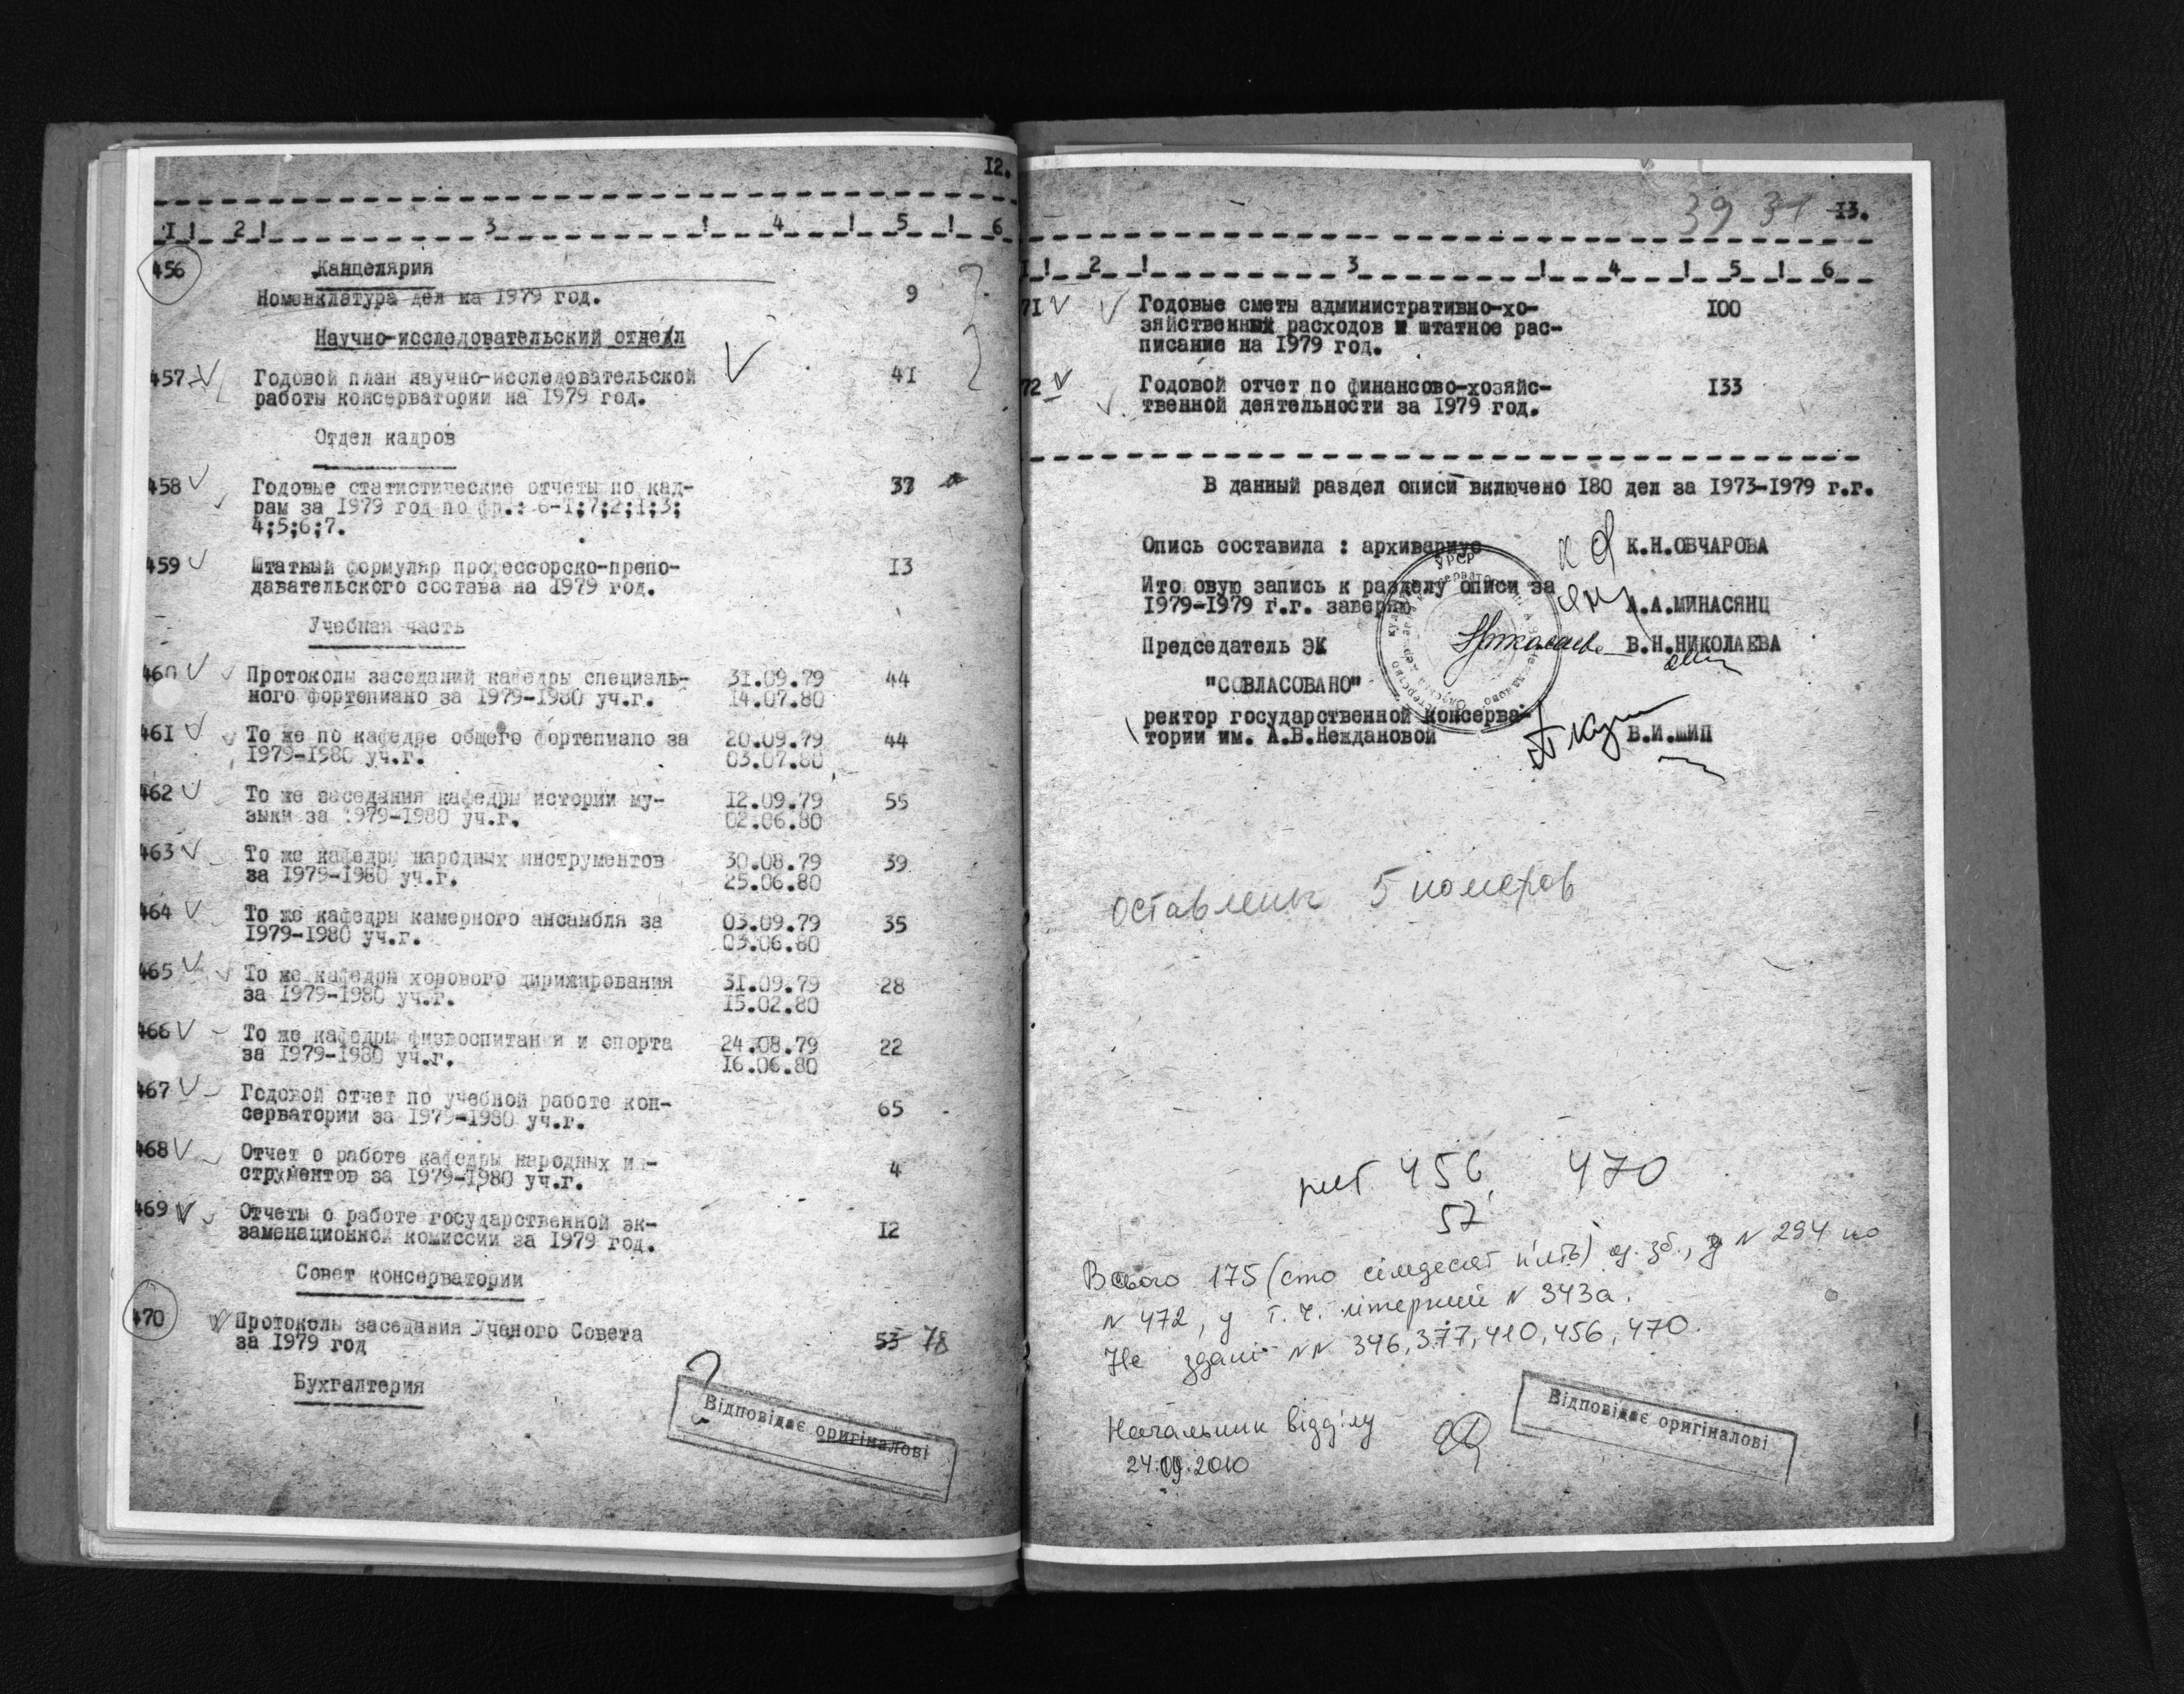 12.
I ! 2 ! 3 ! 4 ! 5 ! 6
456 Канцелярия
Номенклатура дел на 1979 год. 9
Научно-исследовательский отдел
457 Годовой план научно-исследовательской 41
работы консерватории на 1979 год.
Отдел кадров
458 Годовые статистические отчеты по кад- 37
рам за 1979 год по фр.: 6-1;7;2;1;3;
4;5;6;7.
459 Штатный формуляр профессорско-препо- 13
давательского состава на 1979 год.
Учебная часть
460 Протоколы заседаний кафедры специаль- 31.09.79 44
ного фортепиано за 1979-1980 уч.г. 14.07.80
461 То же по кафедре общего фортепиано за 20.09.79 44
1979-1980 уч.г. 03.07.80
462 То же заседания кафедры истории му- 12.09.79 55
зыки за 1979-1980 уч.г. 02.06.80
463 То же кафедры народных инструментов 30.08.79 39
за 1979-1980 уч.г. 25.06.80
464 То же кафедры камерного ансамбля за 03.09.79 35
1979-1980 уч.г. 03.06.80
465 То же кафедры хорового дирижирования 31.09.79 28
за 1979-1980 уч.г. 15.02.80
466 То же кафедры физвоспитания и спорта 24.08.79 22
за 1979-1980 уч.г. 16.06.80
467 Годовой отчет по учебной работе кон- 65
серватории за 1979-1980 уч.г.
468 Отчет о работе кафедры народных ин- 4
струментов за 1979-1980 уч.г.
469 Отчеты о работе государственной эк- 12
заменационной комиссии за 1979 год.
Совет консерватории
470 Протоколы заседания Ученого Совета 53 78
за 1979 год
Бухгалтерия
?
Відповідає оригіналові
39 31 13.
I ! 2 ! 3 ! 4 ! 5 ! 6
71 Годовые сметы административно-хо- 100
зяйственный расходов и штатное рас-
писание на 1979 год.
72 Годовой отчет по финансово-хозяйс- 133
твенной деятельности за 1979 год.
В данный раздел описи включено 180 дел за 1973-1979 г.г.
Опись составила : архивариус К.Н.ОВЧАРОВА
Ито овую запись к разделу описи за
1979-1979 г.г. заверяю А.А.МИНАСЯНЦ
Председатель ЭК В.Н.НИКОЛАЕВА
"СОВЛАСОВАНО"
ректор государственной консерва-
тории им. А.В.Неждановой В.И.ШИП
Оставлены 5 номеров
нет 456, 470
57
Всього 175 (сто сімдесят п'ять) од. зб., з N 294 по
N 472, у т.ч. літерний N 343а.
Не здані NN 346, 377, 410, 456, 470.
Начальник відділу
24.09.2010
Відповідає оригіналові